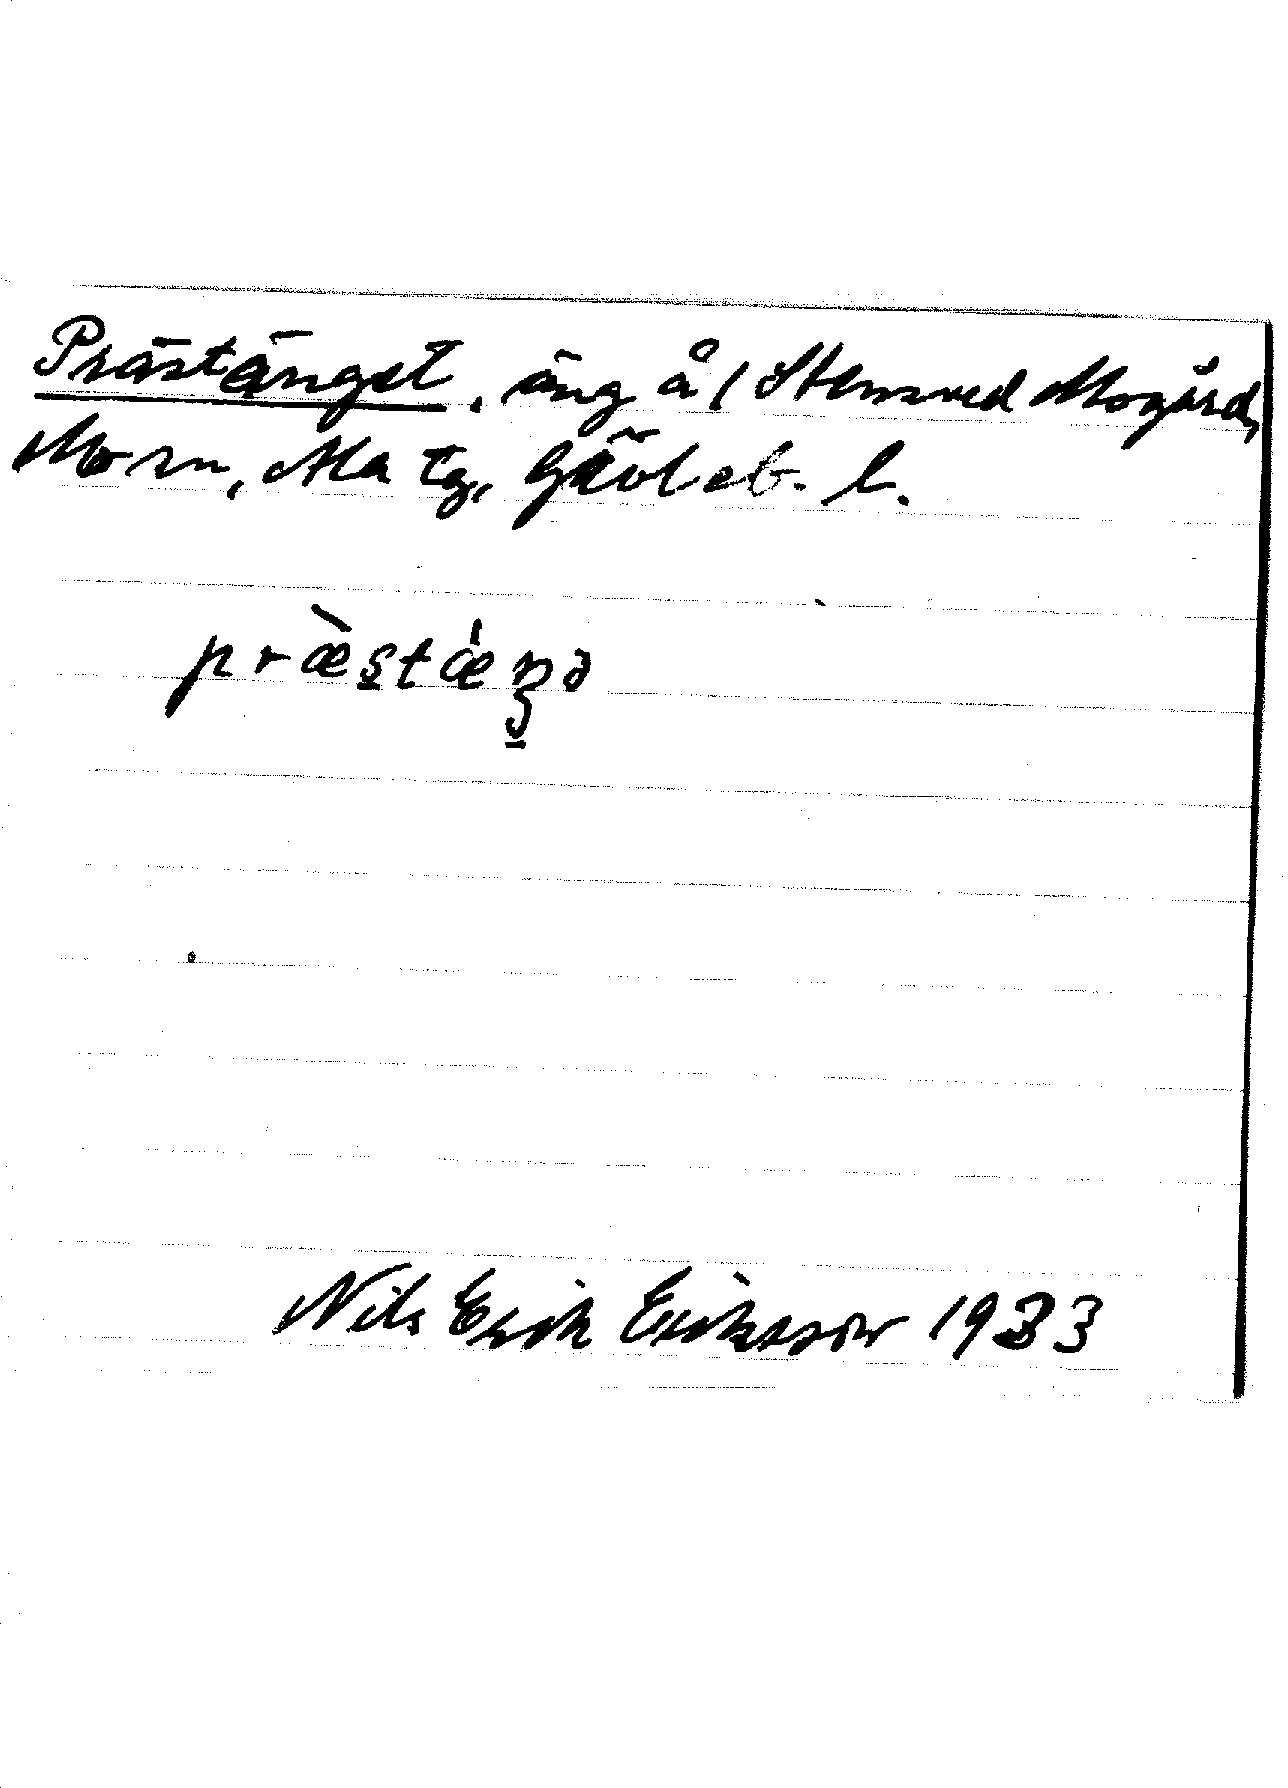 Prästänget, äng å / Stensved Mogård,
Mo sn, Ma tg, Gävleb. l.
præ̀stǽŋə
Nils Erik Eriksson 1933